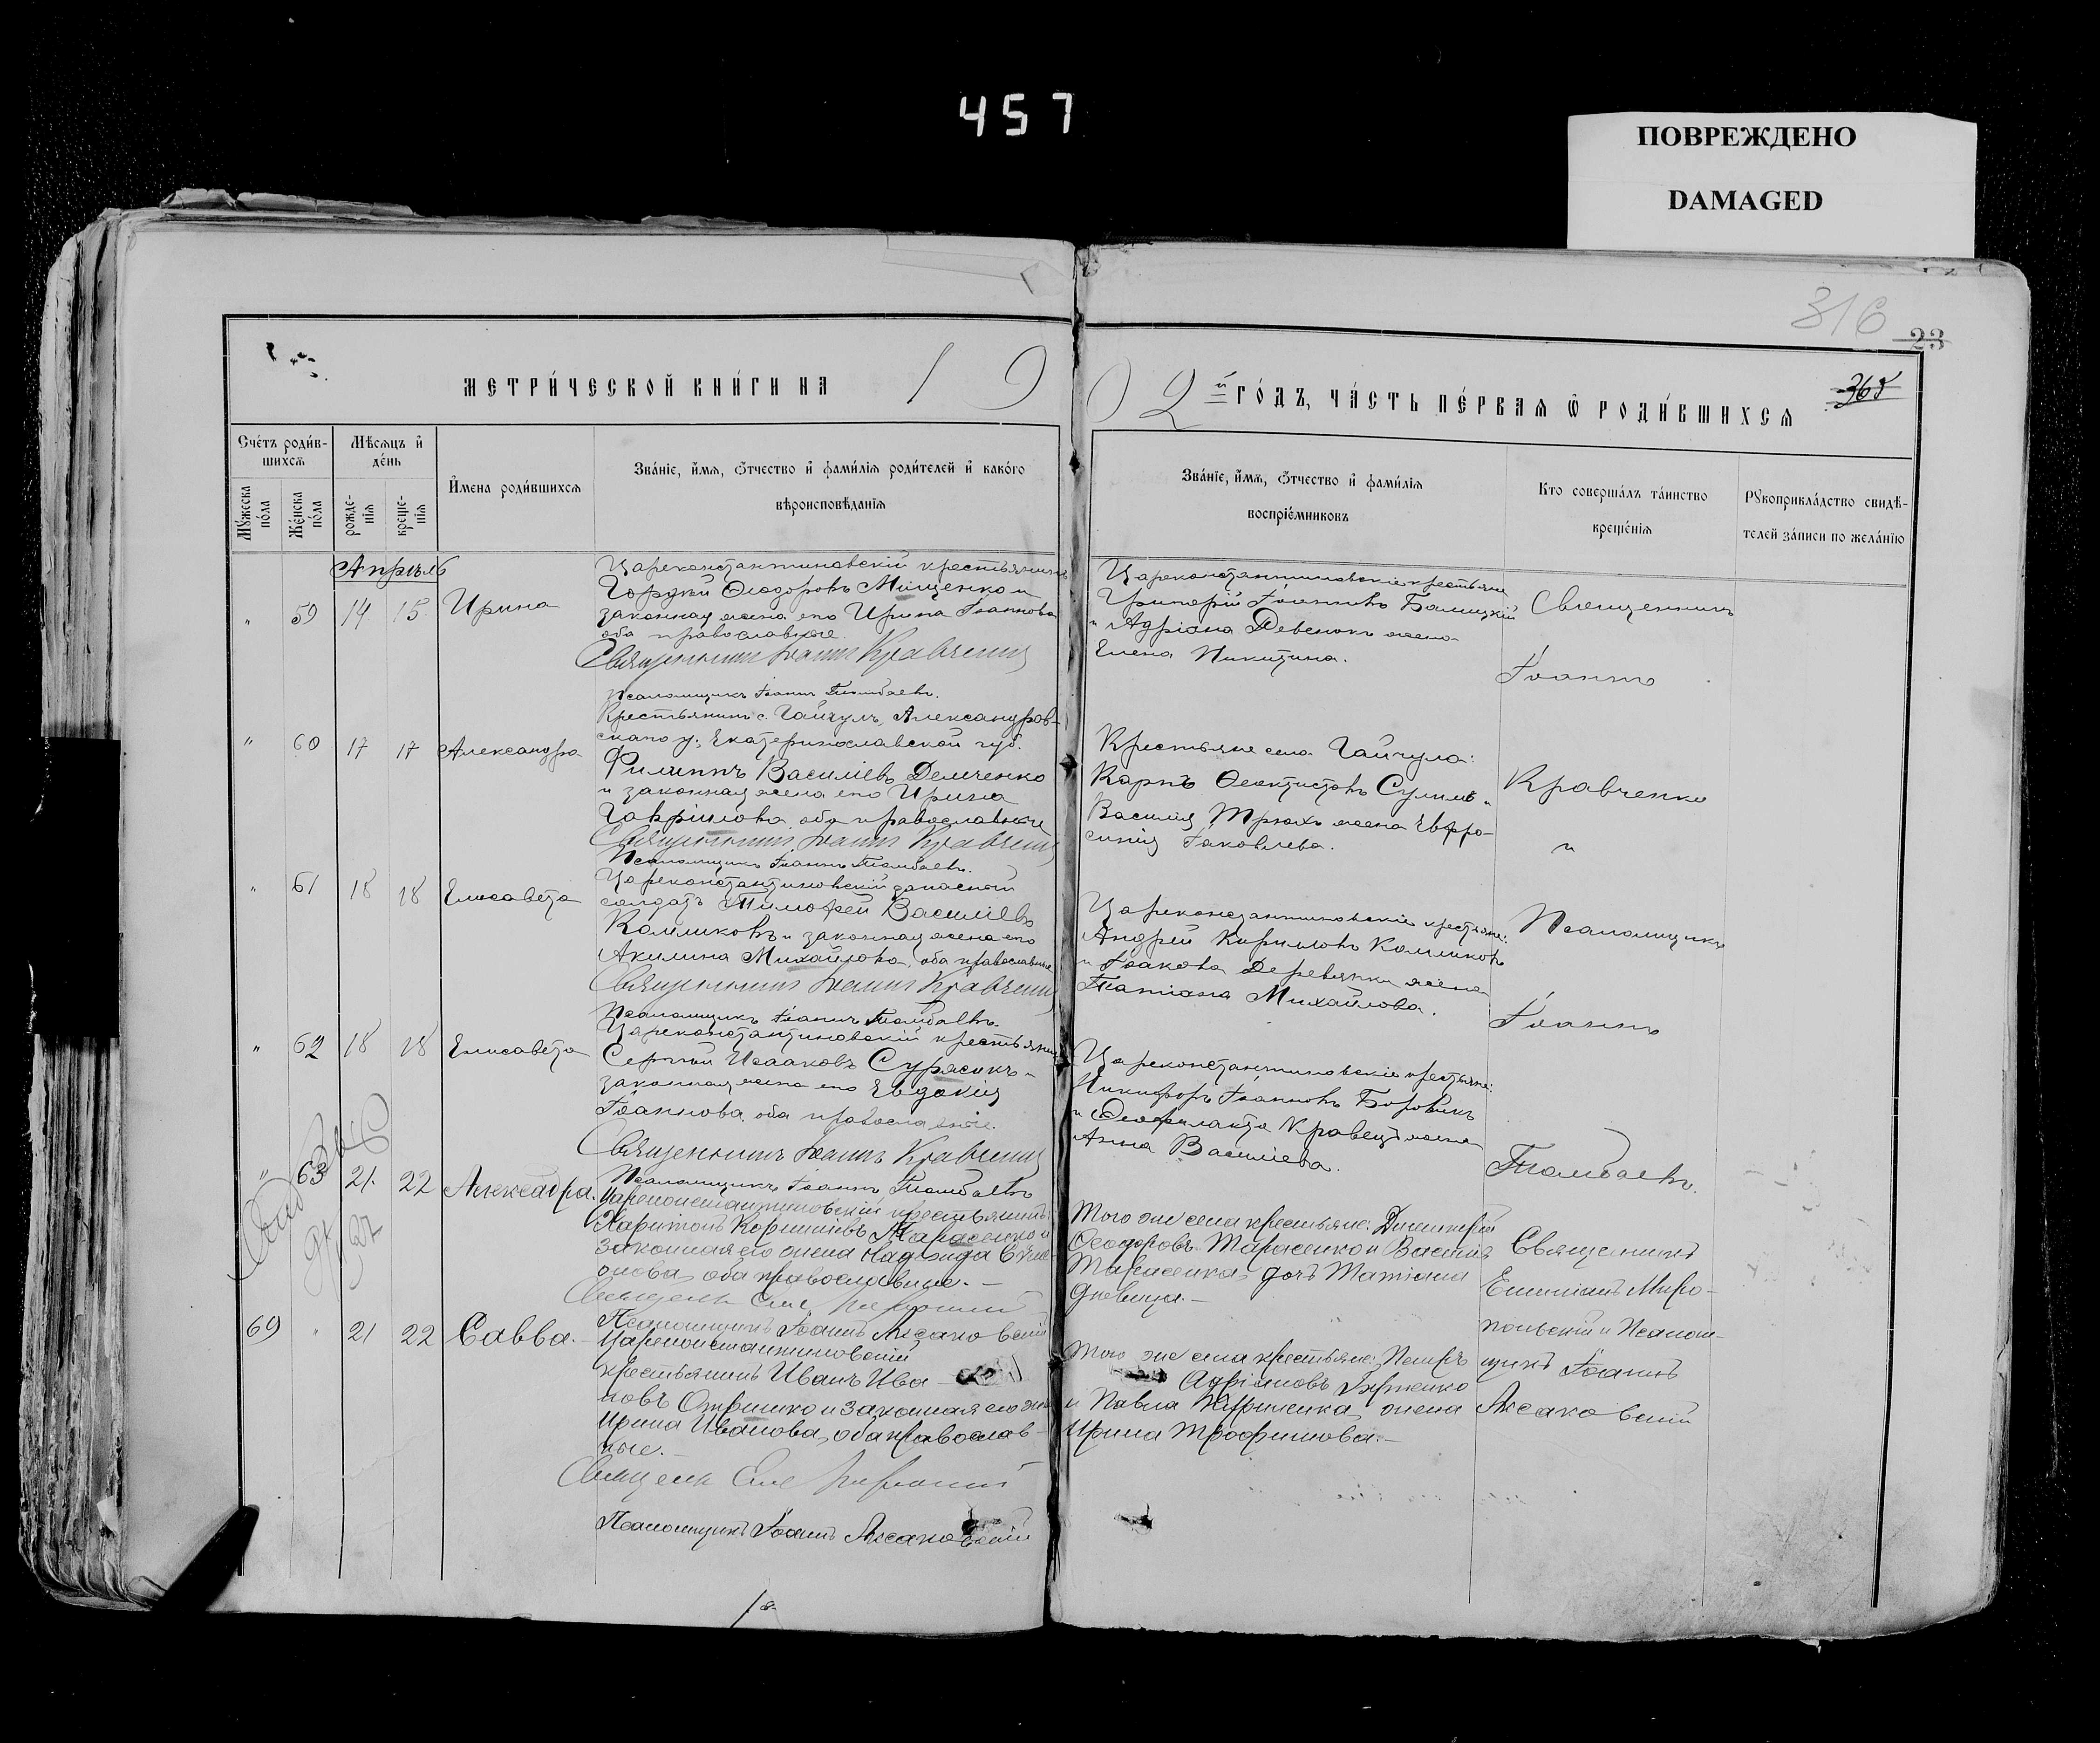 457
ПОВРЕЖДЕНО
DAMAGED
316
23
365
МЕТРИ́ЧЕСКОЙ КНИ́ГИ НА 19
02й ГО́ДЪ, ЧА́СТЬ ПЕ́РВАЯ Ѽ РОДИ́ВШИХСЯ
Сче́тъ роди́в-
шихся
Мѣсяцъ и
де́нь
Имена роди́вшихся
Зва́ніе, и́мя, о́тчество и фами́лія роди́телей и како́го
вѣроисповѣданія
Му́жеска
по́ла
Же́нска
по́ла
рожде-
нія
креще-
нія
Зва́ніе, и́мя, о́тчество и фами́лія
воспріе́мниковъ
Кто соверша́лъ та́инство
креще́нія
Рукоприкла́дство свидѣ-
телей за́писи по жела́нію
Апрѣль
" 59 14 15 Ирина
Цареконстантиновскій крестьянинъ
Ѳеодоровъ Мищенко и
законная жена его Ирина Іоаннова
оба православные
Священникъ Іоаннъ Кравченко
Псаломщикъ Іоаннъ
Цареконстантиновскіе крестьяне
Григорій Іоанновъ
и Адріана жена
Елена Никитина.
Священникъ
Іоаннъ
" 60 17 17 Александра
Крестьянинъ с. Гайчулъ, Александров-
скаго у., Екатеринославской губ.
Филиппъ Василіевъ Демченко
и законная жена его Ирина
Гавріилова, оба православные
Священникъ Іоаннъ Кравченко
Псаломщикъ Іоаннъ
Крестьяне села Гайчула:
Карпъ Ѳеоктистовъ Сулима и
Василія жена Евфро-
синія Іаковлева.
Кравченко
и
" 61 18 18 Елисавета
Цареконстантиновскій запасный
солдатъ Тимофей Василіевъ
Комликовъ и законная жена его
Акилина Михайлова, оба православные
Священникъ Іоаннъ Кравченко
Псаломщикъ Іоаннъ
Цареконстантиновскіе крестьяне:
Андрей Кирилловъ Комликовъ
и Іоакова Деревянки жена
Татіана Михайлова.
Псаломщикъ
Іоаннъ
" 62 18 18 Елисавета
Цареконстантиновскій крестьянинъ
Сергѣй Исааковъ и
законная жена его Евдокія
Іоаннова, оба православные.
Священникъ Іоаннъ Кравченко
Псаломщикъ Іоаннъ
Цареконстантиновскіе крестьяне:
Никифоръ Іоанновъ Боровикъ
и Ѳеофилакта Кравецъ жена
Анна Василіева.
" 63 21. 22 Александра.
Цареконстантиновскій крестьянинъ
Харитонъ Корниліевъ Тарасенко и
законная его жена Надежда
онова, оба православные. —
Псаломщикъ Іоаннъ Аксаковскій
Того же села крестьяне: Димитрій
Ѳеодоровъ Тарасенко и Василія
Тарасенка дочь Татіана
дѣвица. —
Священникъ
Емиліанъ Миро-
польскій и Псалом-
щикъ Іоаннъ
Аксаковскій
64 " 21 22 Савва.
Цареконстантиновскій
крестьянинъ Иванъ Ива-
новъ и законная его жена
Ирина Иванова, оба православ-
ные. —
Псаломщикъ Іоаннъ Аксаковскій
Того же села крестьяне: Петръ
Адріановъ
и Павла жена
Ирина Трофимова. —